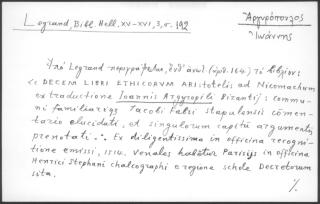 Legrand, Bibl. Hell. XV-XVI, 3, σ. 192
Ἀργυρόπουλος
Ἰωάννης
Ὑπὸ Legrand περιγράφεται, ὑπ' ἀριθ. τὸ βιβλίον
« DECEM LIBRI ETHICORVM ARIstotelis ad Nicomachum
ex traductione Ioannis Argyropili Bizantij: commu
ni familiariqs Jacobi Fabri stapulensis cōmen-
tario elucidati, et singulorum capitū argumentis
prenotati ∴ Ex diligentissima in officina recogni-
tione emissi, Venales habētur Parisijs in officina
Henrici Stephani chalcographi e regione schole Decretorum
sita.
./.